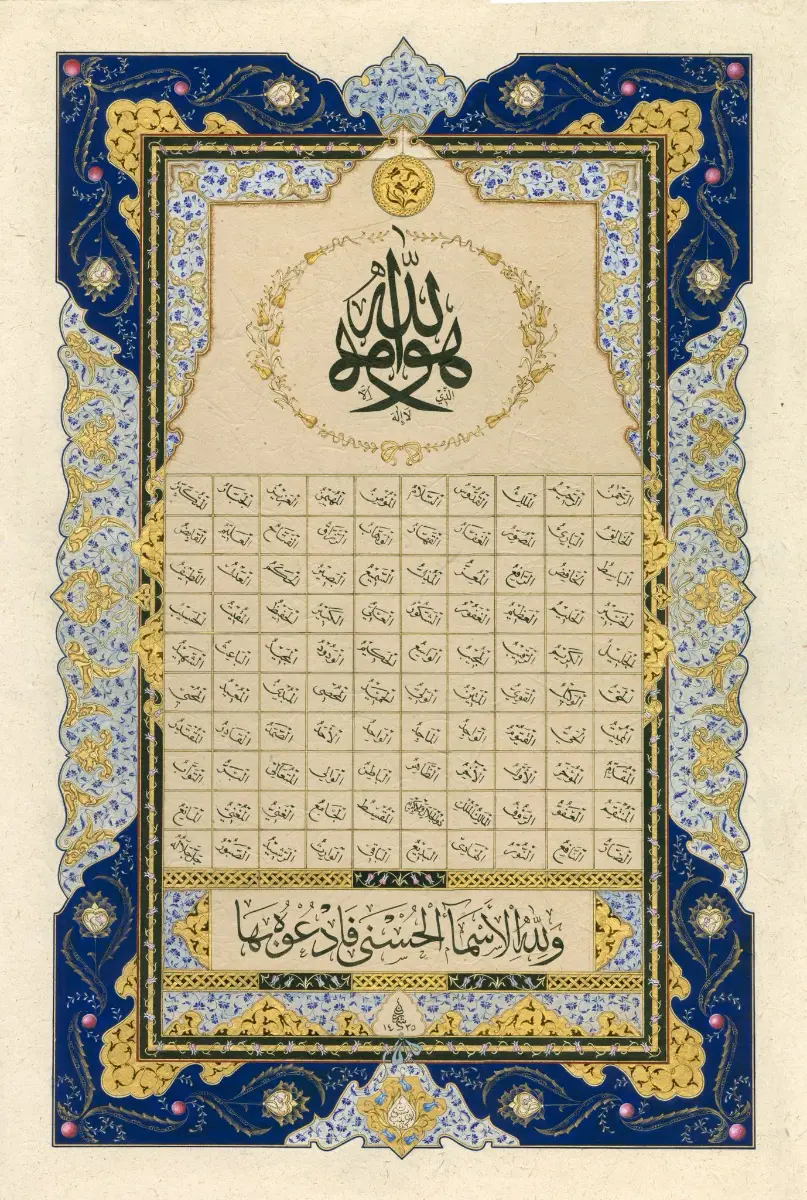 هو الله الذي لا إله إلا هو
الرحمن الرحيم الملك القدوس السلام المؤمن المهيمن العزيز الجبار المتكبر
الخالق البارئ المصور الغفار القهار الوهاب الرزاق الفتاح العليم القابض
الباسط الخافض الرافع المعز المذل السميع البصير الحكم العدل اللطيف
الخبير الحليم العظيم الغفور الشكور العلي الكبير الحفيظ المقيت الحسيب
الجليل الكريم الرقيب المجيب الواسع الحكيم الودود المجيد الباعث الشهيد
الحق الوكيل القوي المتين الولي الحميد المحصي المبدئ المعيد المحيي
المميت الحي القيوم الواجد الماجد الواحد الأحد الصمد القادر المقتدر
المقدم المؤخر الأول الآخر الظاهر الباطن الوالي المتعالي البر التواب
المنتقم العفو الرؤف مالك الملك ذو الجلال والإكرام المقسط الجامع الغني المغني المانع
الضار النافع النور الهادي البديع الباقي الوارث الرشيد الصبور جل جلاله
وَلِلّٰهِ الْأَسْمَآءُ الْحُسْنٰى فَادْعُوهُ بِهَا
١٤٣٥